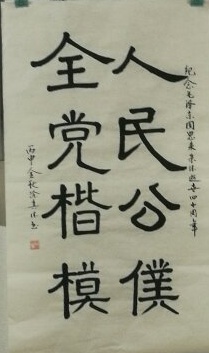 纪念毛泽东周恩来朱德逝世四十周年
人民公僕
全党楷模
丙申金秋